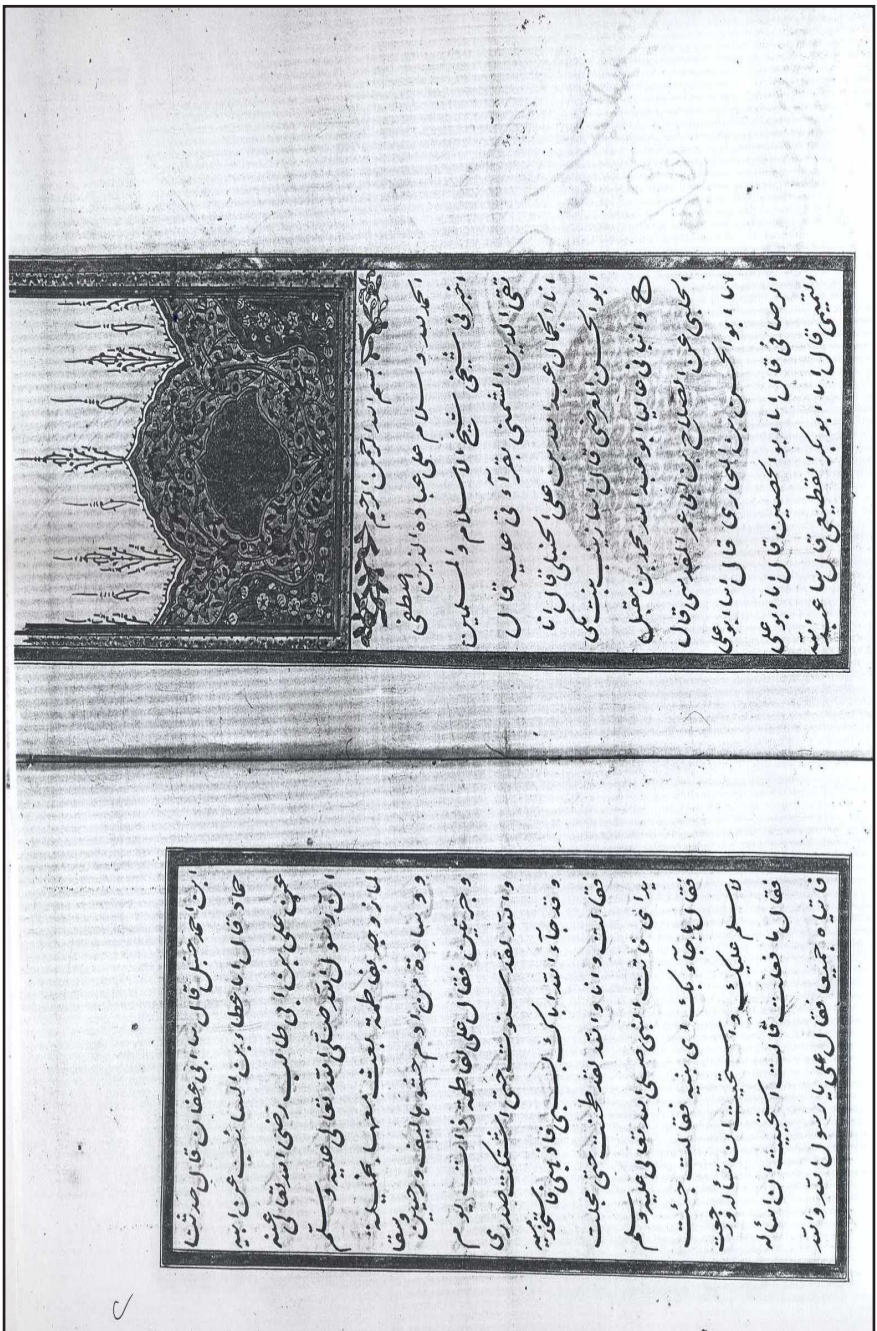 بسم الله الرحمن الرحيم
الحمد لله وسلام على عباده الذين صطفى
اخبرنى شيخى شيخ الاسلام والمسلمين
تقى الدين الشمنى بقرآءتى عليه قال
انا الجمال عبد الله بن على الحنبلى قال انا
ابو الحسن العرضى قال انبا زينب بنت مكى
ح وانبانى عاليا ابو عبد الله محمد بن مقبل
الحلبى عن الصلاح بن ابى عمر المقدسى قال
انا ابو الحسن بن البخارى قال انبا ابو على
الرصافى قال انا ابو الحصين قال انا ابو على
التميمى قال انا ابو بكر القطيعى قال ثنا عبد الله
ابن احمد حنبل قال ثنا ابى عفان قال حدثنا
حماد قال انا عطاء بن السائب عن ابيه
عن على بن ابى طالب رضى الله تعالى عنه
ان رسول الله صلى الله تعالى عليه وسلم
لما زوجه بفاطمة بعث معها بخميلة
ووسادة من ادم حشوها ليف ورحيين وسقا
وجرتين فقال على لفاطمة ذات يوم
والله لقد سنوت حتى اشتكت صدرى
وقد جاء الله اباك بسبى فاذهبى فاستخدميه
فقالت وانا والله لقد طحنت حتى مجلت
يداى فاتت النبى صلى الله تعالى عليه وسلم
فقال ما جاء بك اى بنيه فقالت جئت
لاسلم عليك واستحيت ان تساله ورجعت
فقال ما فعلت قالت استحييت ان اساله
فاتياه جميعا فقال على يا رسول الله والله